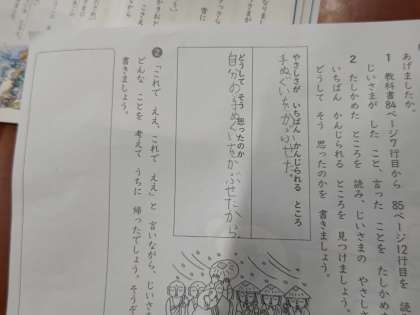 あげましたか。
1 教科書84ページ7行目から 85ページ12行目を 読
じいさまが した こと、言った ことを たしかめ
2 たしかめた ところを 読み、じいさまの やさしさ
いちばん かんじられる ところを 見つけましょう。
どうして そう 思ったのかを 書きましょう。
やさしさが いちばん かんじられる ところ
手ぬぐいをかぶせた。
どうして そう 思ったのか
自分の手ぬぐいをかぶせたから
2 「これで ええ、これで ええ」と 言いながら、じいさま
どんな ことを 考えて うちに 帰ったでしょう。そうぞ
書きましょう。